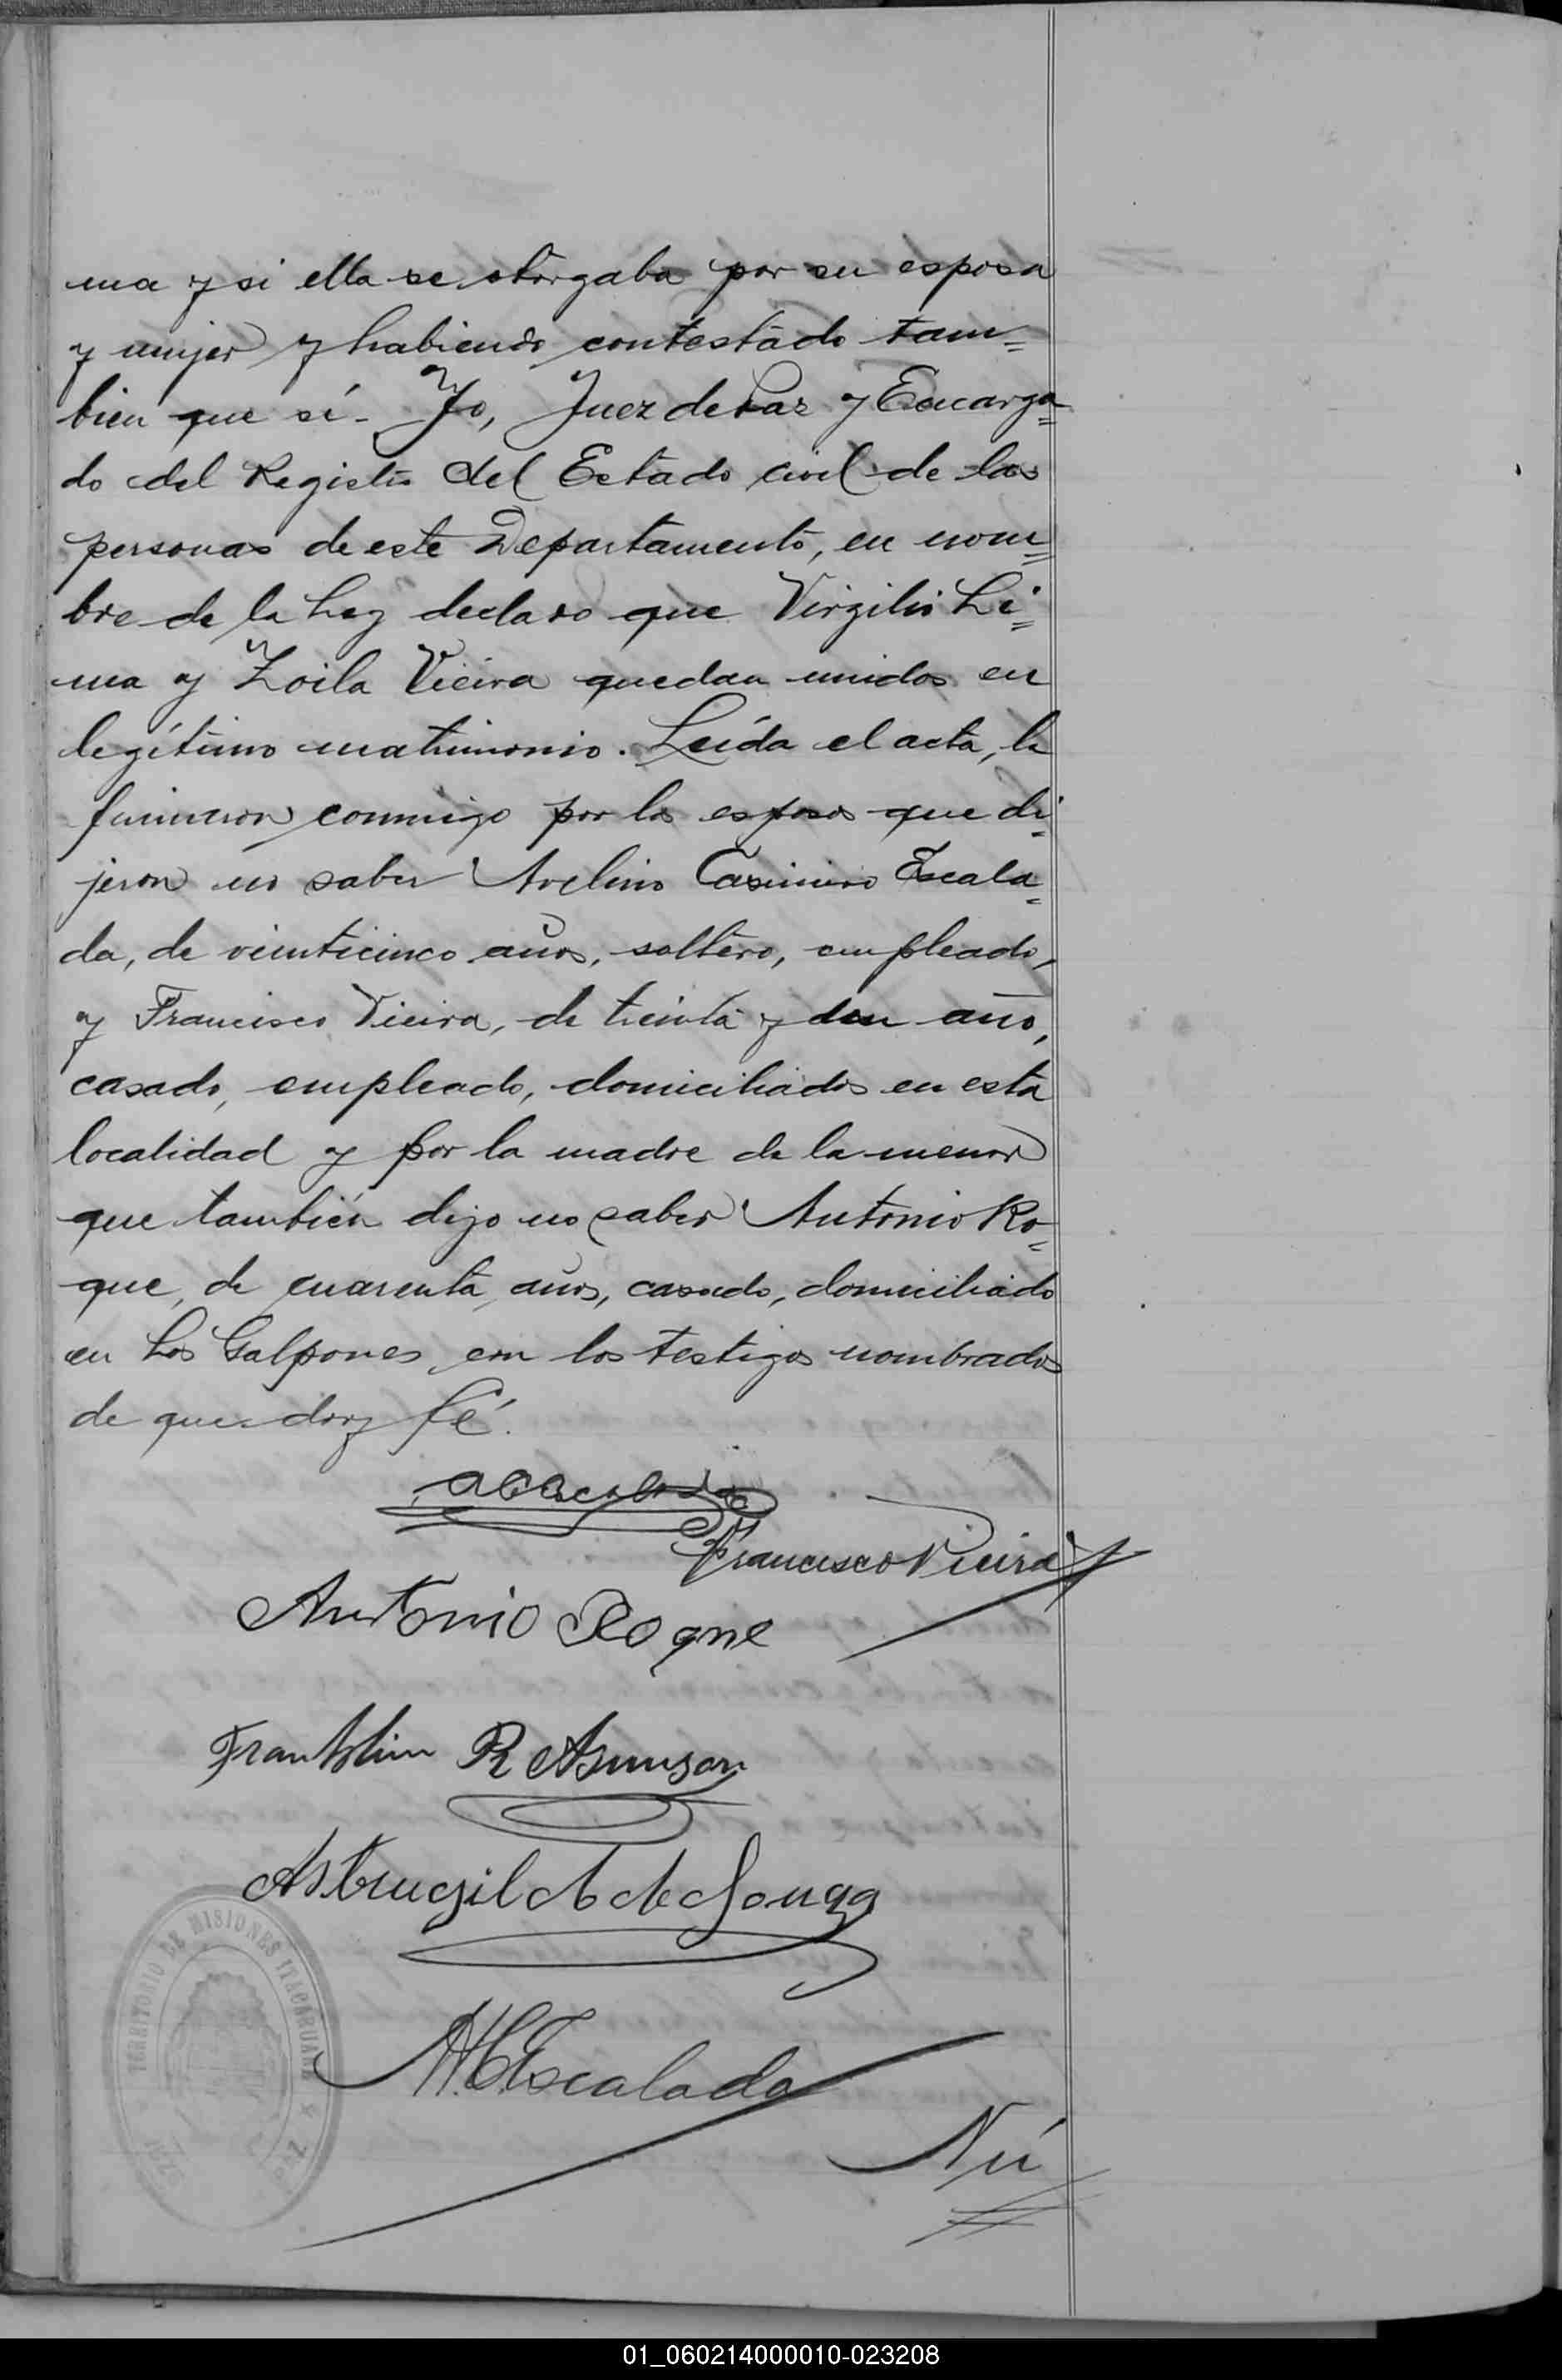 ma y si ella se otorgaba por su esposa
y mujer y habiendo contestado tam=
bien que sí - Yo, Juez de Paz y Encarga=
do del Registro del Estado civil de las
personas de este Departamento, en nom=
bre de la Ley declaro que Virgilio Li=
ma y Zoila Vieira quedan unidos en
legítimo matrimonio. Leída el acta, la
firmaron conmigo por los esposos que di=
jeron no saber Avelino Casimiro Escala=
da, de veinticinco años, soltero, empleado,
y Francisco Vieira, de treinta y dos años,
casado, empleado, domiciliados en esta
localidad y por la madre de la menor
que también dijo no saber Antonio Ro=
que, de cuarenta años, casado, domiciliado
en Los Galpones, con los testigos nombrados
de que doy fé.
A C Escalada
Francisco Vieira
Antonio Roque
Franklin R Asunson
Astrugildo de Souza
TERRITORIO DE MISIONES
A. C. Escalada
Nú
01_060214000010-023208